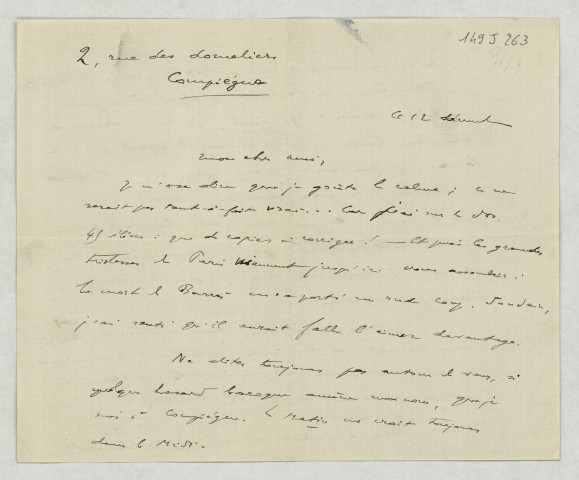 149 J 263
2, rue des domeliers
Compiègne
Ce 12 décembre
mon cher ami,
Je n'ose dire que je goûte le calme ; ce ne
serait pas tout-à-fait vrai... Car j'ai sur le dos
45 élèves : que de copies à corriger ! — Et puis les grandes
tristesses de Paris viennent jusqu'ici vous assaillir :
la mort de Barrès m'a porté un rude coup. Soudain,
j'ai senti qu'il aurait fallu l'aimer davantage.
Ne dites toujours pas autour de vous, si
quelque hasard baroque amène mon nom, que je
suis à Compiègne. Le Matin me croit toujours
dans le Midi.